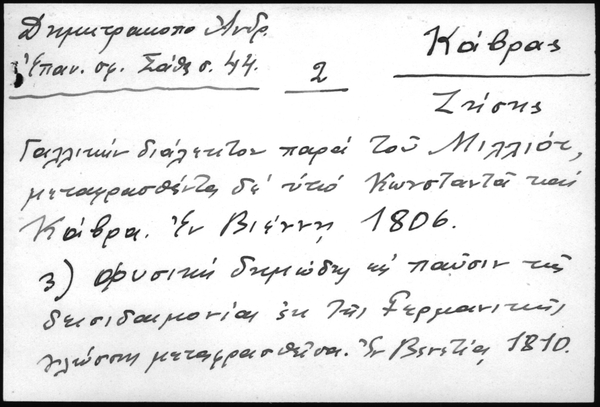 Δημητρακοπο Ἀνδρ.
Ἐπαν. σφ. Σάθα σ. 44.
2
Κάβρας
Ζήσης
Γαλλικήν διάλεκτον παρά τοῦ Μιλλιότ,
μεταφρασθέντα δέ ὑπό Κωνσταντᾶ καί
Κάβρα. Ἐν Βιέννῃ 1806.
3) Φυσική δημώδης εἰς παῦσιν τῆς
δεισιδαιμονίας ἐκ τῆς Γερμανικῆς
γλώσσης μεταφρασθεῖσα. Ἐν Βενετίᾳ 1810.